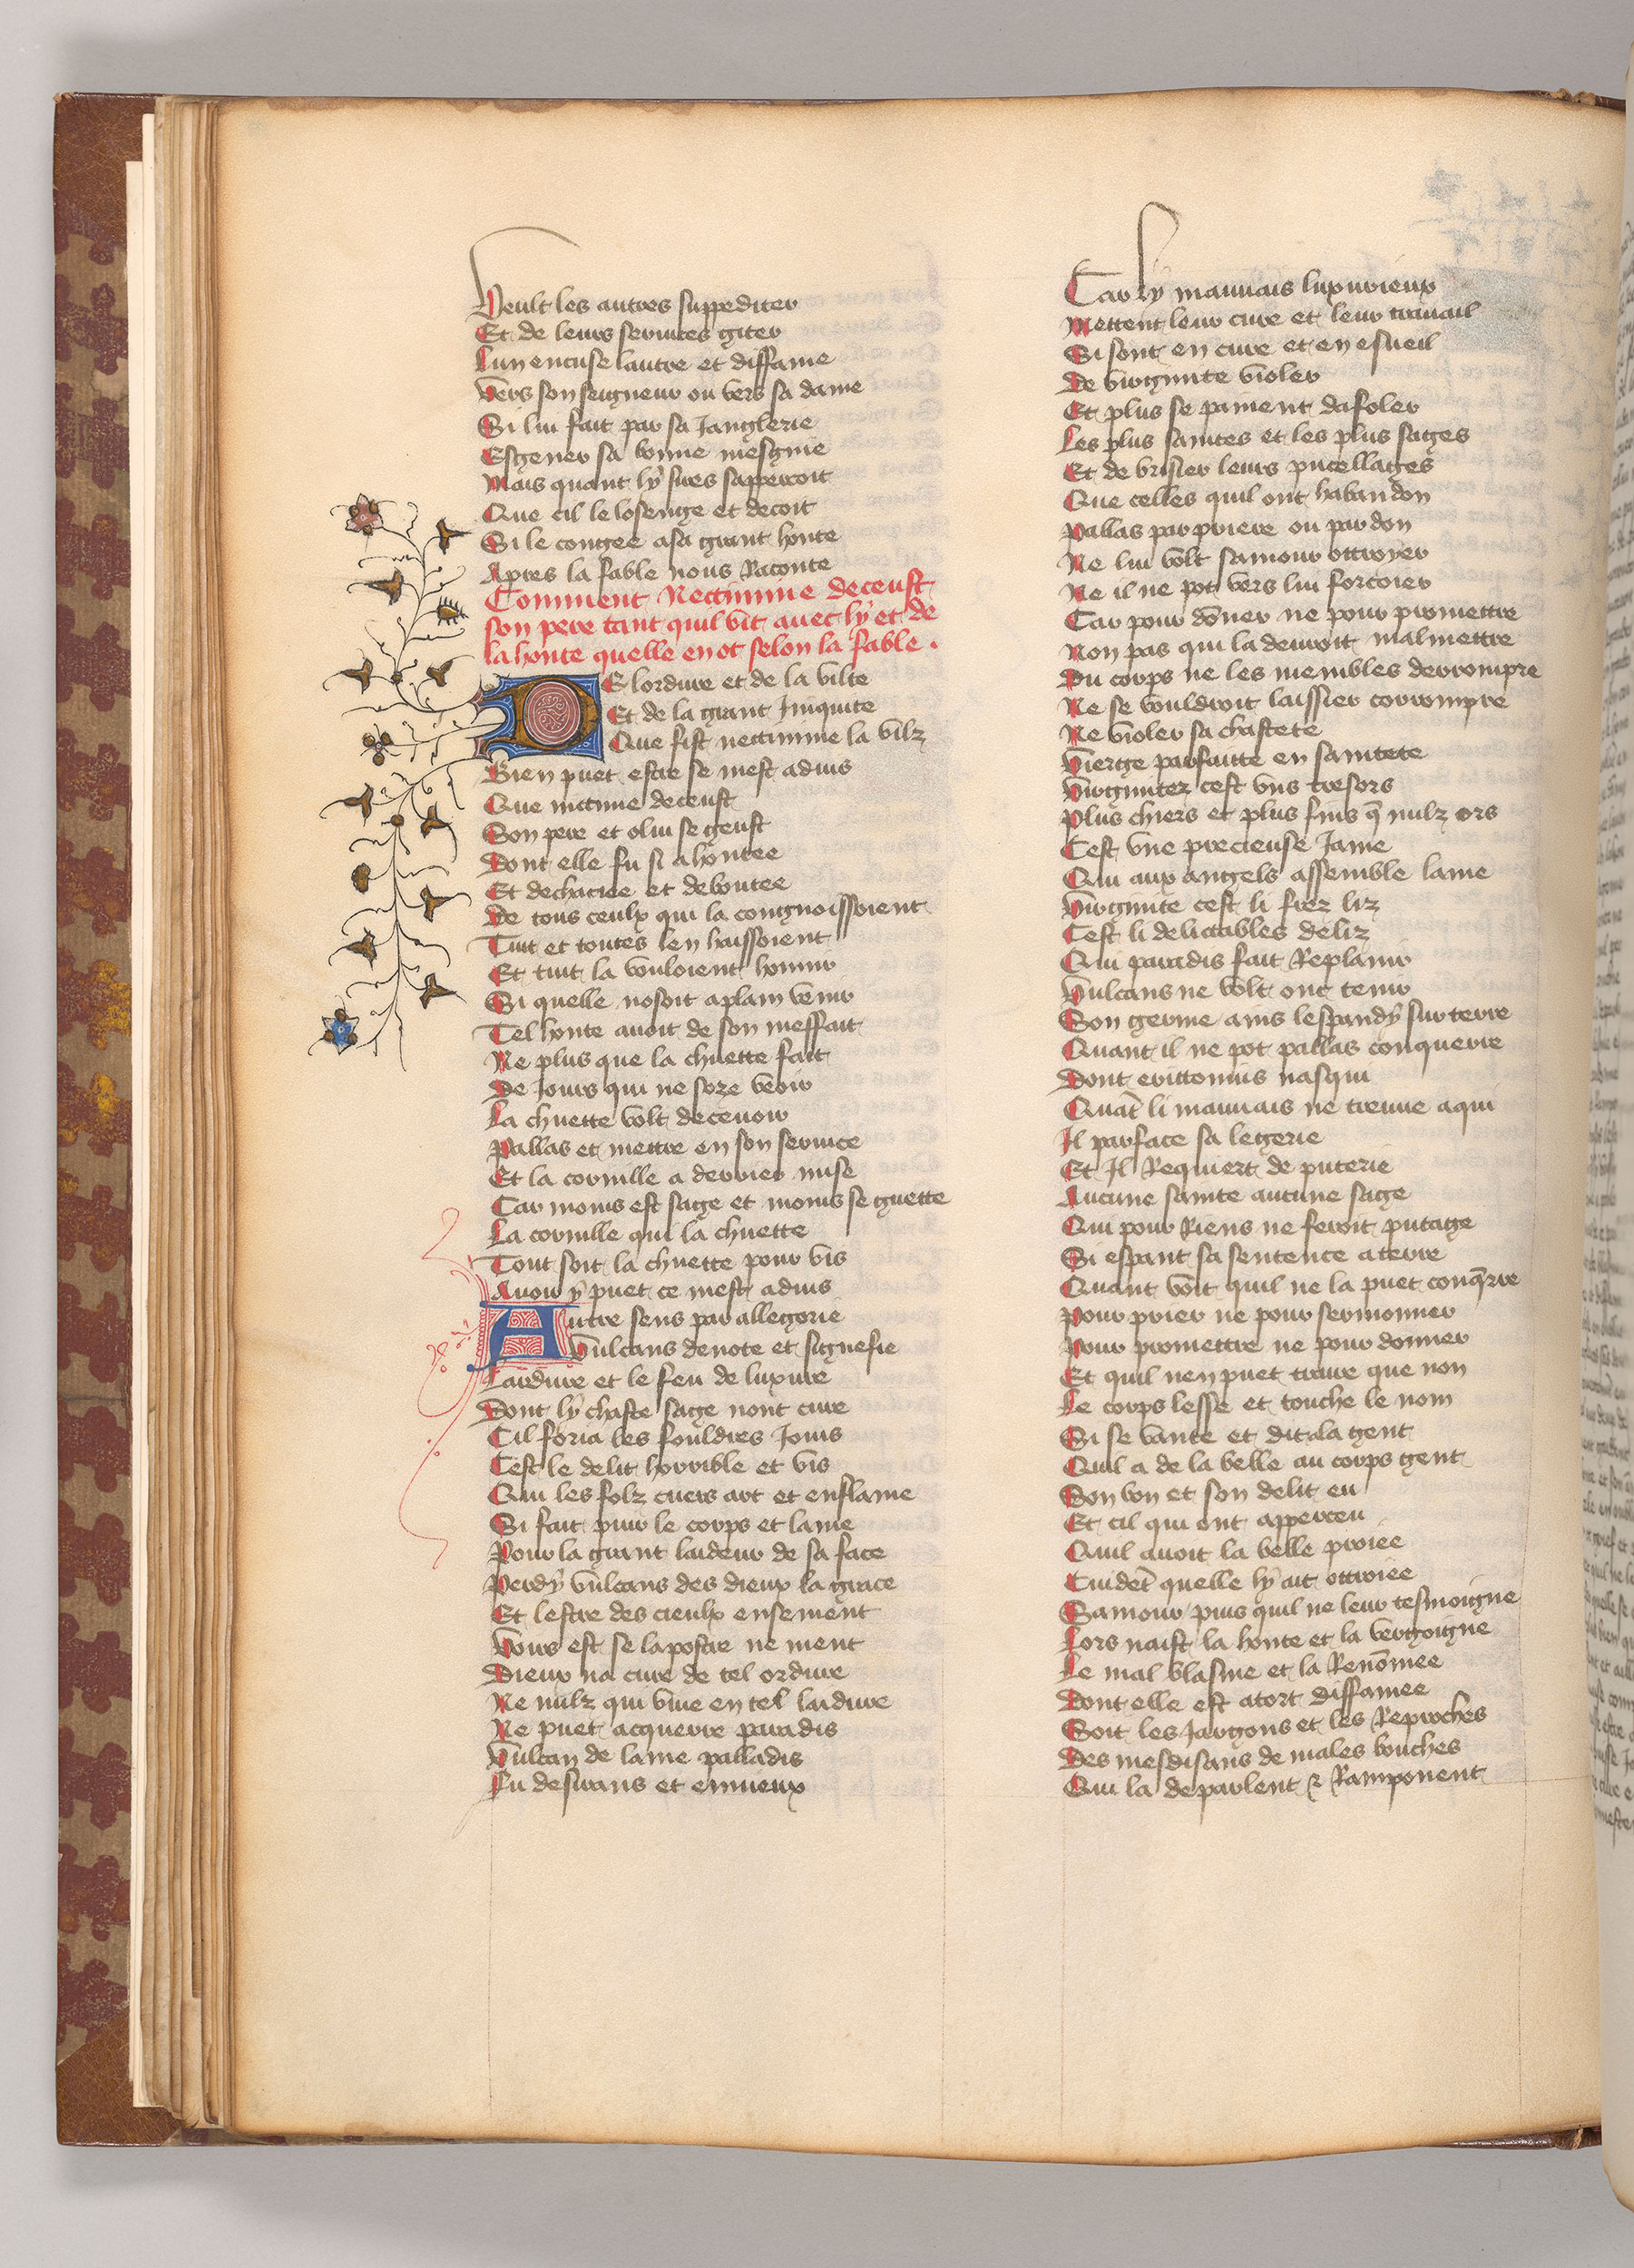 Veult les autres suppediter
Et de leurs seruices giter
Lun encuse lautre et diffame
Vers son seigneur ou vers sa dame
Si lui fait par sa Janglerie
Esgener sa bonne mesgnie
Mais quant ly sires sappercoit
Que cil le losenge et decoit
Si le congee a sa grant honte
Apres la fable nous Raconte
Comment Nectimine deceust
son pere tant quil vit auec ly et de
la honte quelle en ot selon la fable .
DE lordure et de la vilte
Et de la grant Iniquite
Que fist nectimine la vilz
Bien puet estre se mest aduis
Que nictine deceust
Son pere et o lui se geust
Dont elle fu si ahontee
Et dechaciee et deboutee
De tous ceulx qui la congnoissoient
Tuit et toutes len haissoient
Et tuit la vouloient honnir
Si quelle nosoit a plain venir
Tel honte auoit de son meffait
Ne plus que la chuette fait
De Jours qui ne soze veoir
La chuette volt deceuoir
Pallas et mettre en son seruice
Et la cornille a derrier mise
Car moins est sage et moins se guette
La cornille qui la chuette
Tout soit la chuette pour vis
Auoir y puet ce mest aduis
Autre sens par allegorie
Vulcans denote et signefie
Lardure et le feu de luxure
Dont ly chaste sage nont cure
Cil foria les fouldres Jouis
Cest le delit horrible et vis
Qui les folz cuers art et enflame
Si fait puir le corps et lame
Pour la grant laideur de sa face
Perdy vulcans des dieux la grace
Et lestre des cieulx ensement
Vous est se lapostre ne ment
Dieux na cure de tel ordure
Ne nulz qui viue en tel laidure
Ne puet acquerre paradis
Vulcan de lame palladis
Fu desirans et enuieux
Car ly mauuais luxurieux
Mettent leur cure et leur trauail
Si sont en cure et en esueil
De virginite violer
Et plus se painent dafoler
Les plus saintes et les plus sages
Et de brisier leurs pucellages
Que celles quil ont habandon
Pallas par priere ou par don
Ne lui volt samour ottroyer
Ne il ne pot vers lui forcoier
Car pour dõner ne pour promettre
Non pas qui la deuroit malmettre
Du corps ne les membles derrompre
Ne se vouldroit laissier corrompre
Ne violer sa chastete
Vierge parfaitte en saintete
Virginitez cest vns tresors
Plus chiers et plus fins q̃ nulz ors
Cest vne precieuse Jame
Qui aux angels assemble lame
Virginite cest li frez liz
Cest li delictables deliz
Qui paradis fait Replanir
Vulcans ne volt onc tenir
Son germe ains lespandy sur terre
Quant il ne pot pallas conquerre
Dont erittonius nasqui
Quãt li mauuais ne treuue a qui
Il parface sa legerie
Et Il Requiert de puterie
Aucune sainte aucune sage
Qui pour Riens ne feroit putage
Si espant sa sentence a terre
Quant voit quil ne la puet conq̃rre
Pour prier ne pour sermonner
Pour promettre ne pour donner
Et quil nen puet traire que non
Le corps lesse et touche le nom
Si se vante et dit a la gent
Quil a de la belle au corps gent
Don bon et son delit eu
Et cil qui ont apperceu
Quil auoit la belle proiee
Cuidẽt quelle ly ait ottroiee
Samour puis quil ne leur tesmoigne
Lors naist la honte et la vergoigne
Le mal blasme et la Renõmee
Dont elle est a tort diffamee
Soit les Jargons et les Reproches
Des mesdisans de males bouches
Qui la deparlent & Ramponent